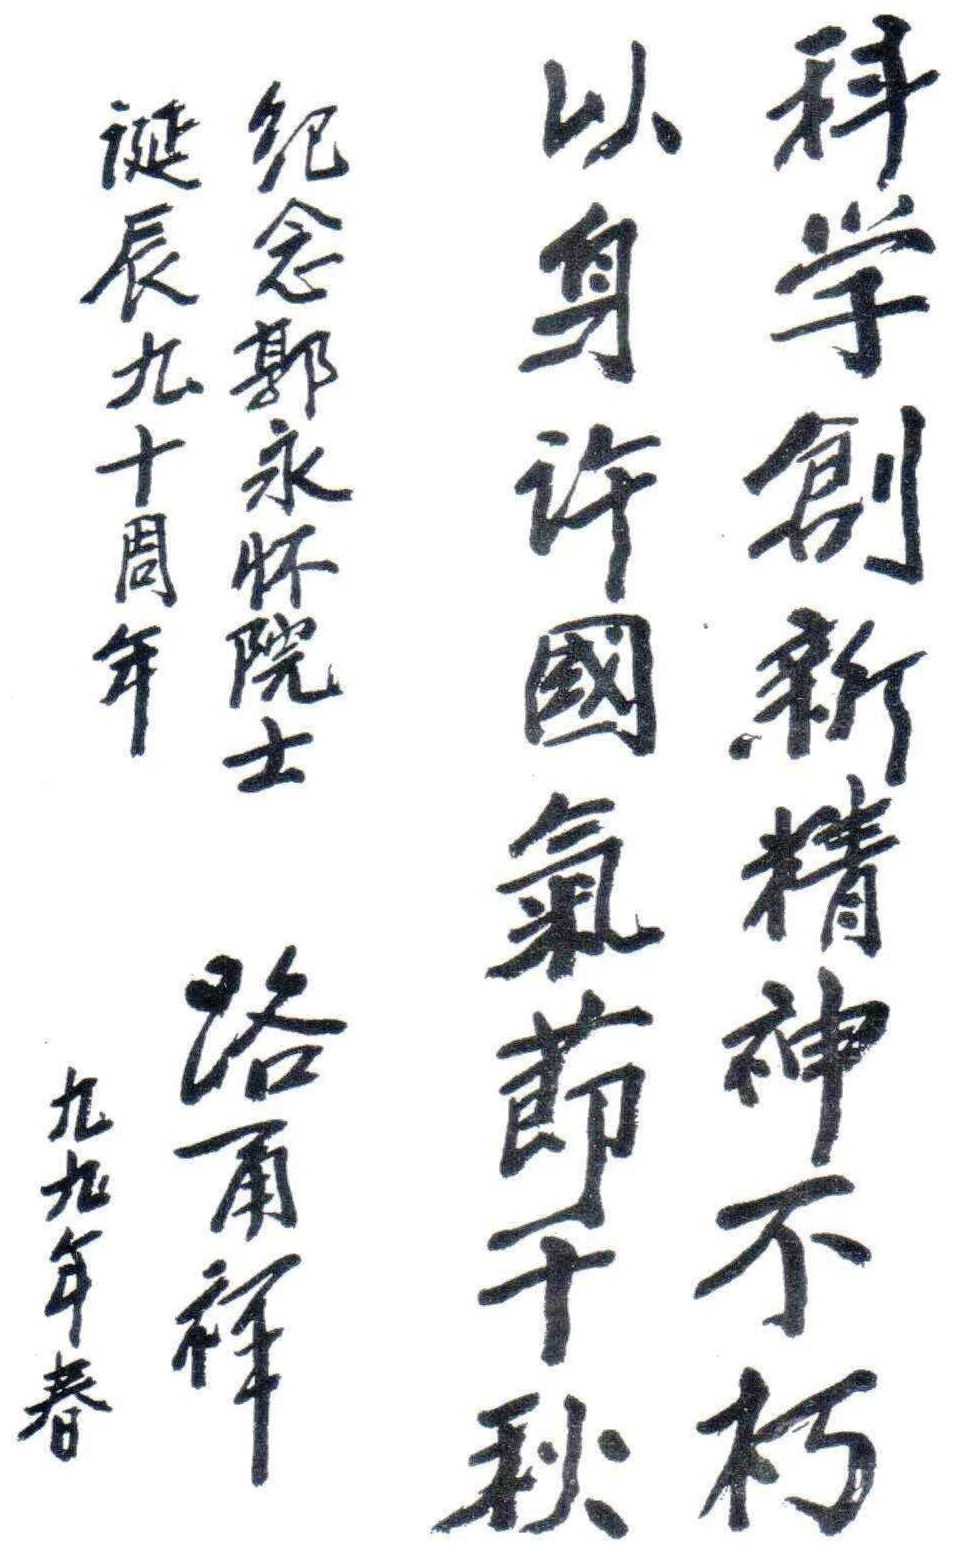 科学創新精神不朽
以身许國氣節千秋
纪念郭永怀院士
诞辰九十周年
路甬祥
九九年春